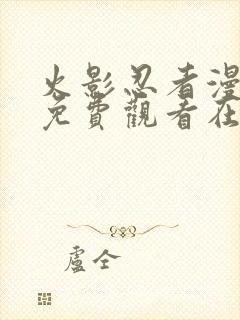 火影忍者漫
免費觀看在
盧仝